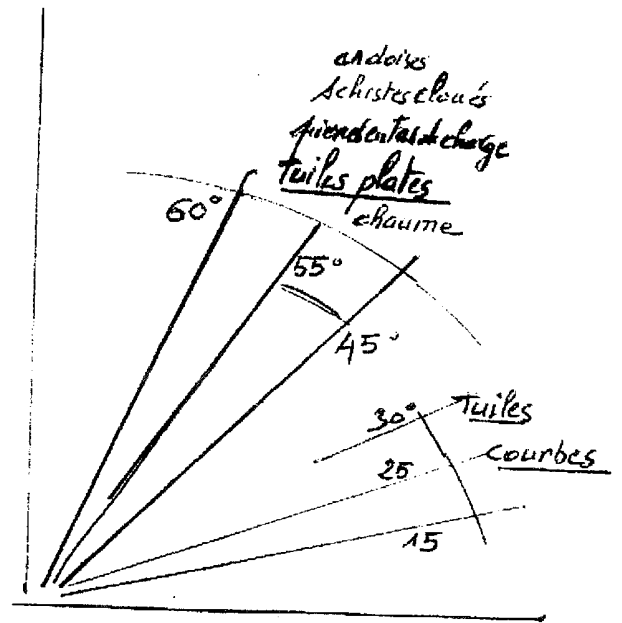 andoises
Schistes cloués
pierre en tas de charge
Tuiles plates
60°
chaume
55°
45°
30° Tuiles
25 Courbes
15